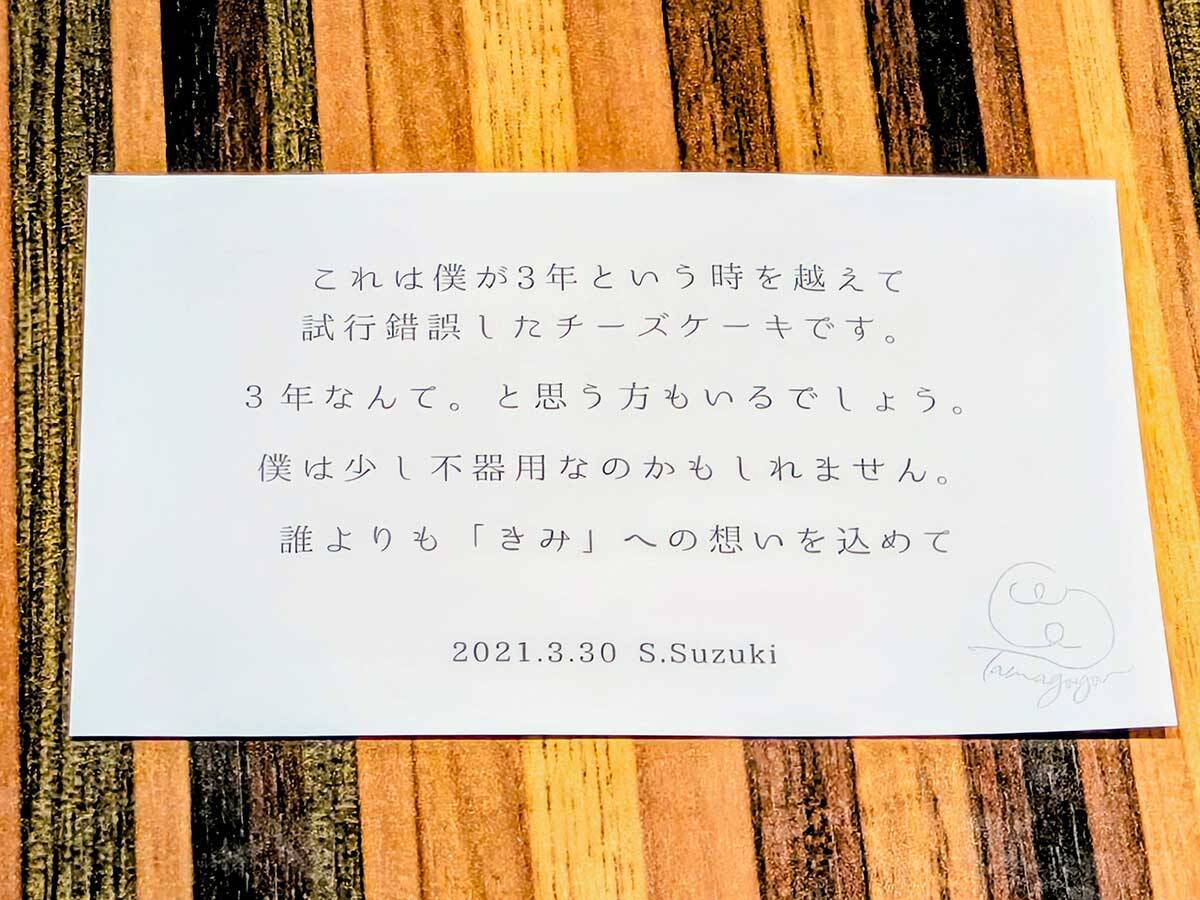 これは僕が3年という時を越えて
試行錯誤したチーズケーキです。
3年なんて。と思う方もいるでしょう。
僕は少し不器用なのかもしれません。
誰よりも「きみ」への想いを込めて
2021.3.30 S.Suzuki